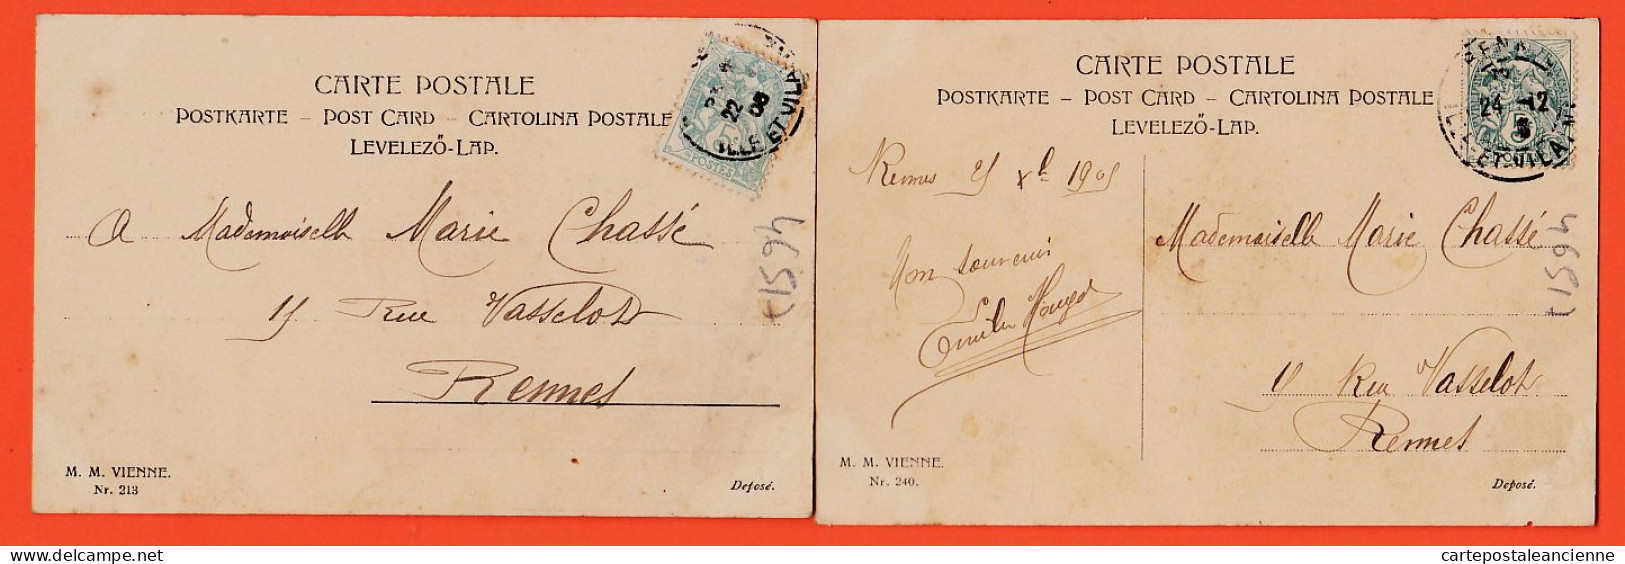 CARTE POSTALE
POSTKARTE – POST CARD – CARTOLINA POSTALE
LEVELEZŐ-LAP.
22
ILLE ET VILA
POSTES
A Mademoiselle Marie Chassé
15 Rue Vasselot
Rennes
M. M. VIENNE.
Nr. 213
Deposé.
71594
CARTE POSTALE
POSTKARTE – POST CARD – CARTOLINA POSTALE
LEVELEZŐ-LAP.
RENN
24 -12
ET-VILAIN
Rennes 25 Xbre 1905
Mon souvenir
Mademoiselle Marie Chassé
15 Rue Vasselot
Rennes
M. M. VIENNE.
Nr. 240.
Deposé.
71594
cartepostaleancienne